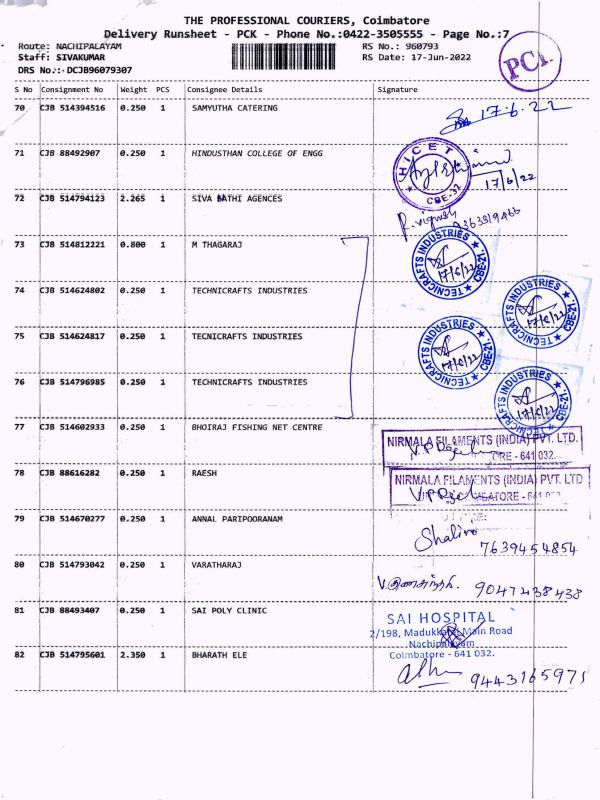 THE PROFESSIONAL COURIERS, Coimbatore
Delivery Runsheet - PCK - Phone No.:0422-3505555 - Page No.:7
Route: NACHIPALAYAM
RS No.: 960793
Staff: SIVAKUMAR
RS Date: 17-Jun-2022
DRS No.:- DCJB96079307
PCK
S No Consignment No Weight PCS Consignee Details Signature
70 CJB 514394516 0.250 1 SAMYUTHA CATERING
17.6.22
71 CJB 88492907 0.250 1 HINDUSTHAN COLLEGE OF ENGG
HICET
CBE-32
17/6/22
72 CJB 514794123 2.265 1 SIVA BATHI AGENCES
R. vignesh
9363319466
73 CJB 514812221 0.800 1 M THAGARAJ
TECNICRAFTS INDUSTRIES CBE-21.
17/6/22
74 CJB 514624802 0.250 1 TECHNICRAFTS INDUSTRIES
TECNICRAFTS INDUSTRIES CBE-21.
17/6/22
75 CJB 514624817 0.250 1 TECNICRAFTS INDUSTRIES
TECNICRAFTS INDUSTRIES CBE-21.
17/6/22
76 CJB 514796985 0.250 1 TECHNICRAFTS INDUSTRIES
TECNICRAFTS INDUSTRIES CBE-21.
17/6/22
77 CJB 514602933 0.250 1 BHOIRAJ FISHING NET CENTRE
NIRMALA FILAMENTS (INDIA) PVT. LTD.
ORE - 641 032.
78 CJB 88616282 0.250 1 RAESH
NIRMALA FILAMENTS (INDIA) PVT. LTD
79 CJB 514670277 0.250 1 ANNAL PARIPOORANAM
7639454854
80 CJB 514793042 0.250 1 VARATHARAJ
9047438438
81 CJB 88493407 0.250 1 SAI POLY CLINIC
SAI HOSPITAL
2/198, Madukkarai Main Road
Nachipalayam
Coimbatore - 641 032.
82 CJB 514795601 2.350 1 BHARATH ELE
9443165971